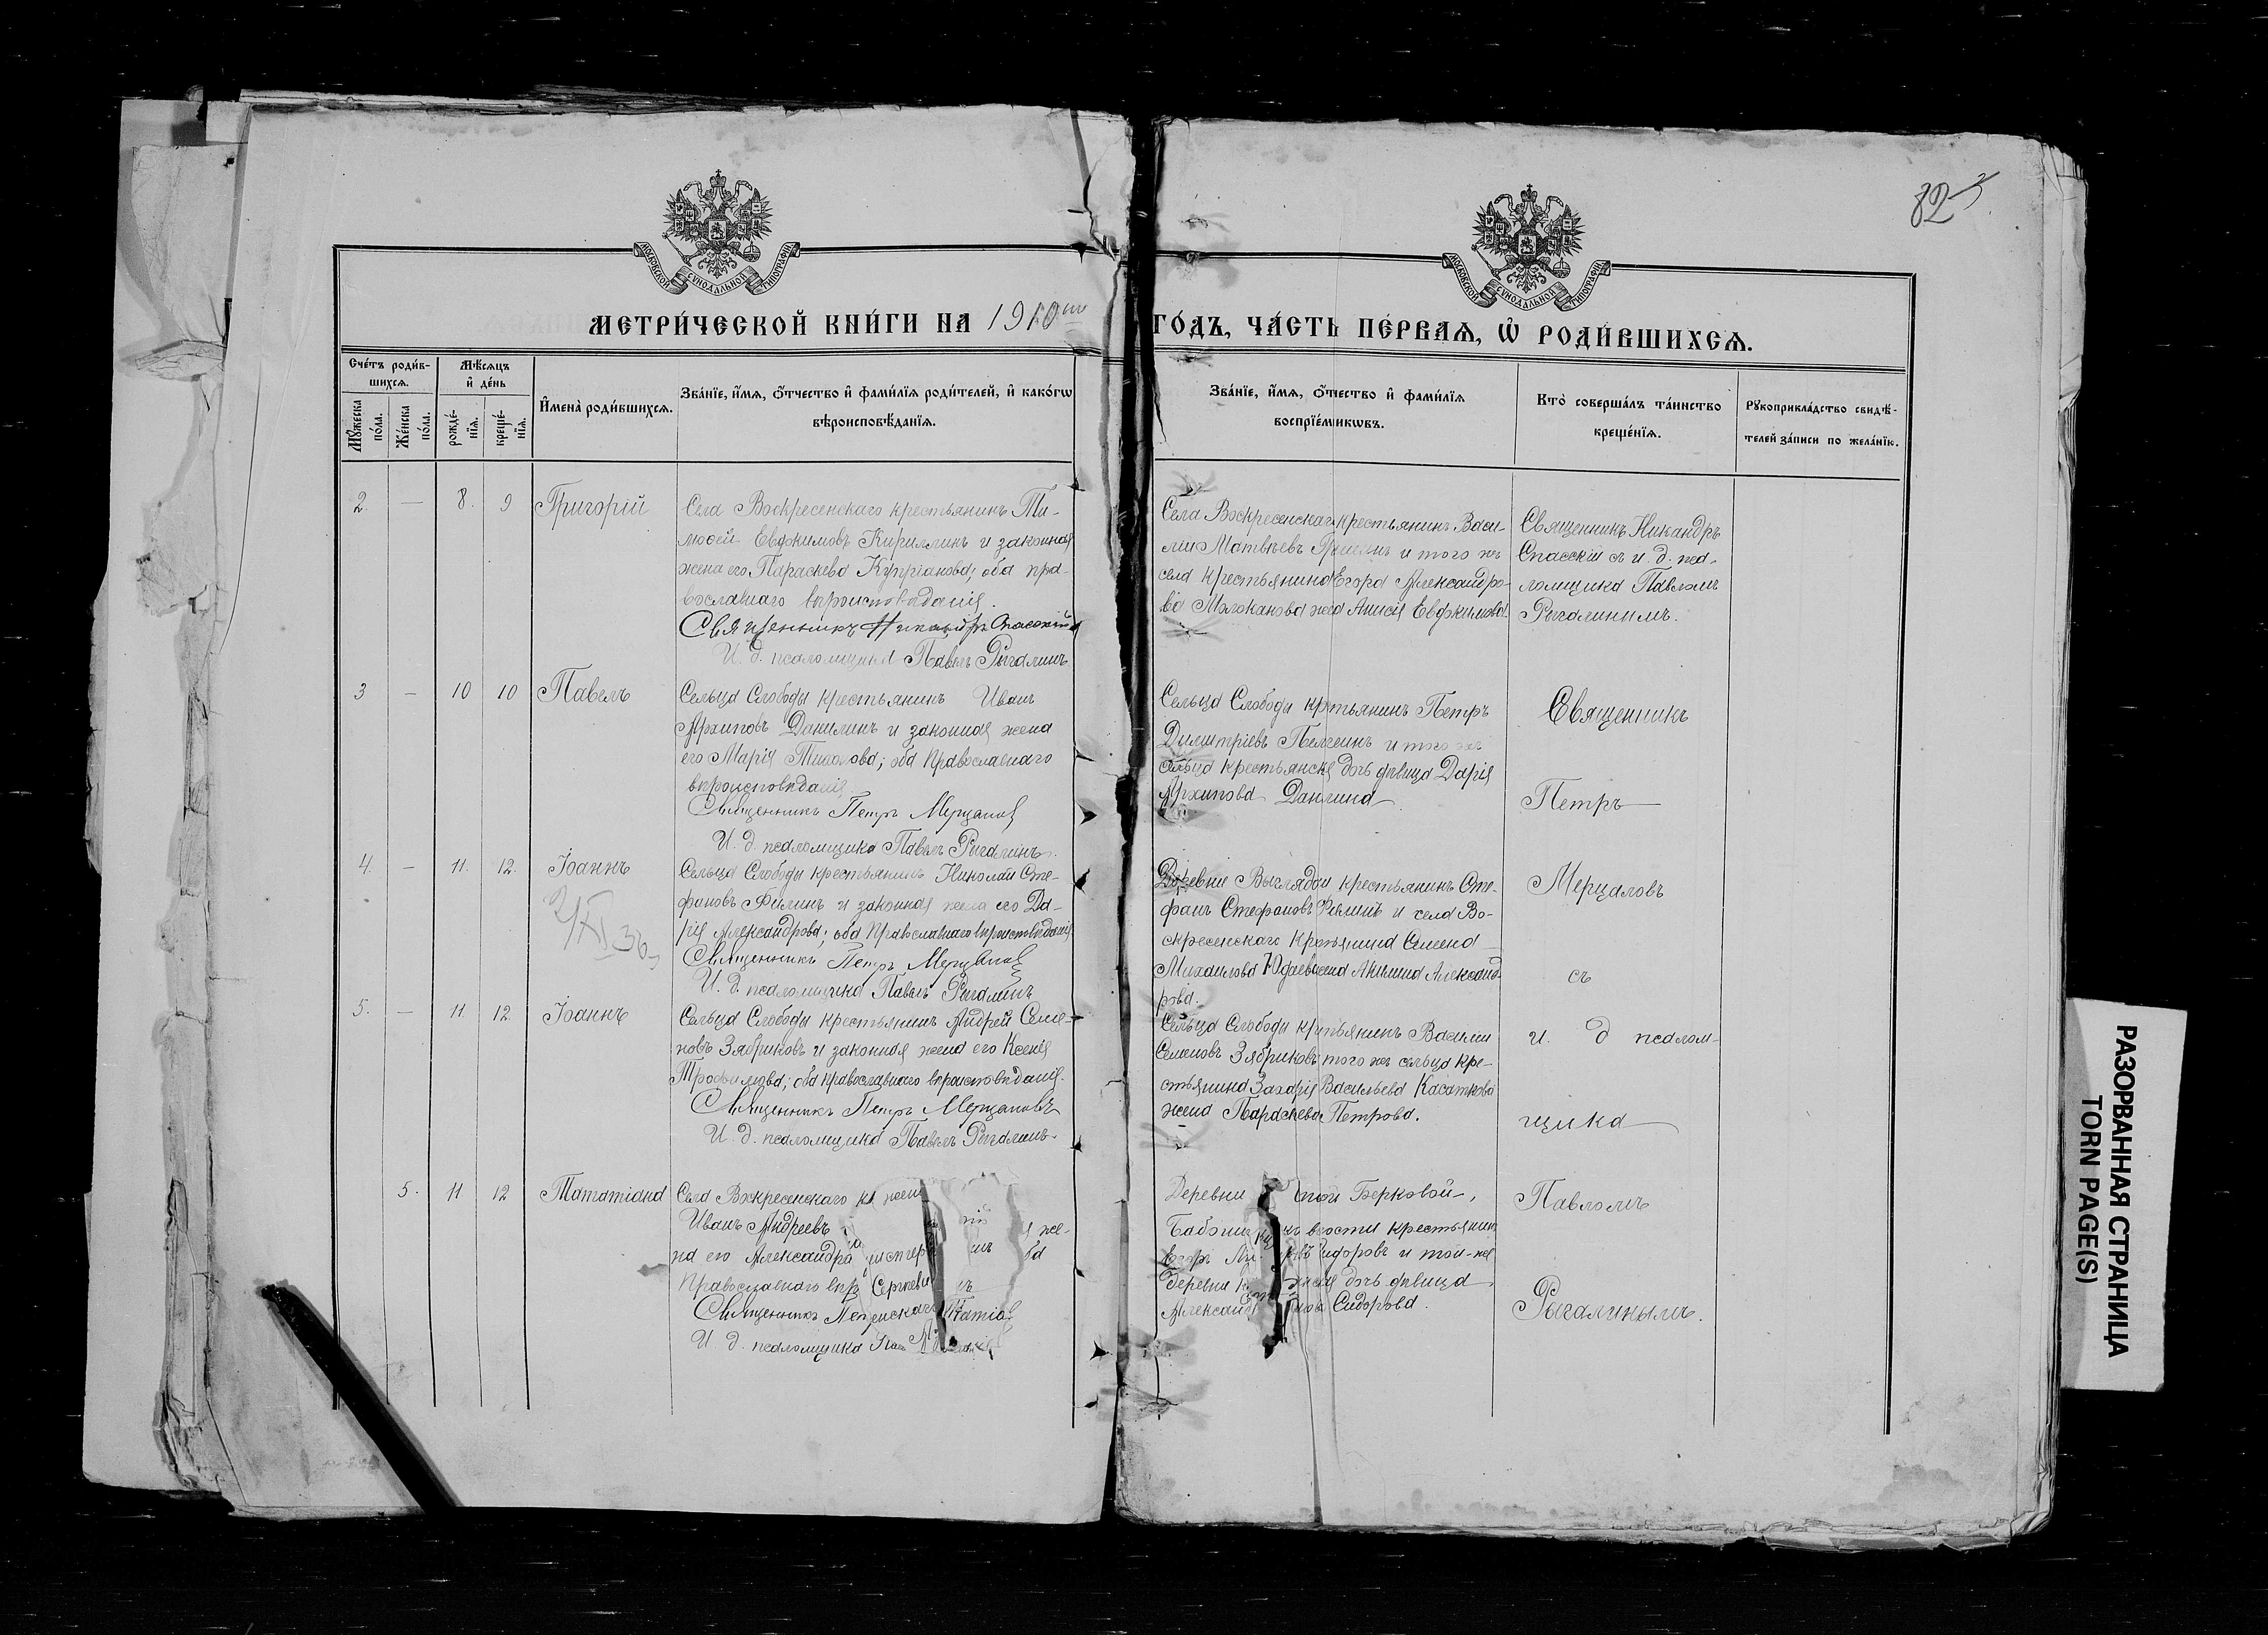 82
МОСКОВСКОЙ СУНОДАЛЬНОЙ ТИПОГРАФІИ
МОСКОВСКОЙ СУНОДАЛЬНОЙ ТИПОГРАФІИ
МЕТРИ́ЧЕСКОЙ КНИ́ГИ НА 1910ый ГО́ДЪ, ЧА́СТЬ ПЕ́РВАѦ, Ѡ҆ РОДИ́ВШИХСѦ.
Сче́тъ роди́вшихсѧ.
Мꙋ́жеска по́ла.
Же́нска по́ла.
Мѣ́сѧцъ и҆ де́нь
рожде́нїѧ.
креще́нїѧ.
И҆мена̀ роди́вшихсѧ.
Зва́нїе, и҆́мѧ, ѻ҆́тчество и҆ фами́лїѧ роди́телей, и҆ како́гѡ
вѣроисповѣ́данїѧ.
Зва́нїе, и҆́мѧ, ѻ҆́тчество и҆ фами́лїѧ
воспрїе́мникѡвъ.
Кто̀ соверша́лъ та́инство
креще́нїѧ.
Рꙋкоприкла́дство свидѣ́-
телей за́писи по жела́нїю.
2. — 8. 9 Григорій
Села Воскресенскаго крестьянинъ Ти-
моѳей Евфимовъ Кириллинъ и законная
жена его Параскева Купріанова; оба пра-
вославнаго вѣроисповѣданія.
Священникъ Никандръ Спасскій
И. д. псаломщика Павелъ Рыгалинъ
Села Воскресенскаго крестьянинъ Васи-
лій Матвѣевъ и того же
села крестьянина Егора Александро-
ва Молоканова жена Анисія Евфимова.
Священникъ Никандръ
Спасскій съ и. д. пса-
ломщика Павломъ
Рыгалинымъ.
3 — 10 10 Павелъ
Сельца Слободы крестьянинъ Иванъ
Архиповъ Данилинъ и законная жена
его Марія Тихонова; оба Православнаго
вѣроисповѣданія
Священникъ Петръ Мерцаловъ
И. д. псаломщика Павелъ Рыгалинъ.
Сельца Слободы крестьянинъ Петръ
Димитріевъ и того же
сельца крестьянская дочь дѣвица Дарія
Архипова Данилина
Священникъ
Петръ
4. — 11. 12. Іоаннъ
Сельца Слободы крестьянинъ Николай Сте-
фановъ Филинъ и законная жена его Да-
рія Александрова; оба Православнаго вѣроисповѣданія
Священникъ Петръ Мерцаловъ
И. д. псаломщика Павелъ Рыгалинъ
Деревни Выглядовы крестьянинъ Сте-
фанъ Стефановъ Филинъ и села Во-
скресенскаго крестьянина Симеона
Михаилова жена Акилина Александ-
рова.
Мерцаловъ
съ
5. — 11. 12. Іоаннъ
Сельца Слободы крестьянинъ Андрей Семе-
новъ Зябриковъ и законная жена его Ксенія
Трофимова; оба православнаго вѣроисповѣданія.
Священникъ Петръ Мерцаловъ
И. д. псаломщика Павелъ Рыгалинъ.
Сельца Слободы крестьянинъ Василій
Семеновъ Зябриковъ того же сельца кре-
стьянина Захарія Васильева Касаткова
жена Параскева Петрова.
и. д псалом-
щика
5. 11. 12 Татіана
Села Воскресенскаго
Иванъ Андреевъ же-
на его Александра
Православнаго
Священникъ
И. д. псаломщика
Деревни Берковой,
крестьянинъ
Егоръ Сидоровъ и той-же
деревни дочь дѣвица
Сидорова.
Павломъ
Рыгалинымъ.
РАЗОРВАННАЯ СТРАНИЦА
TORN PAGE(S)